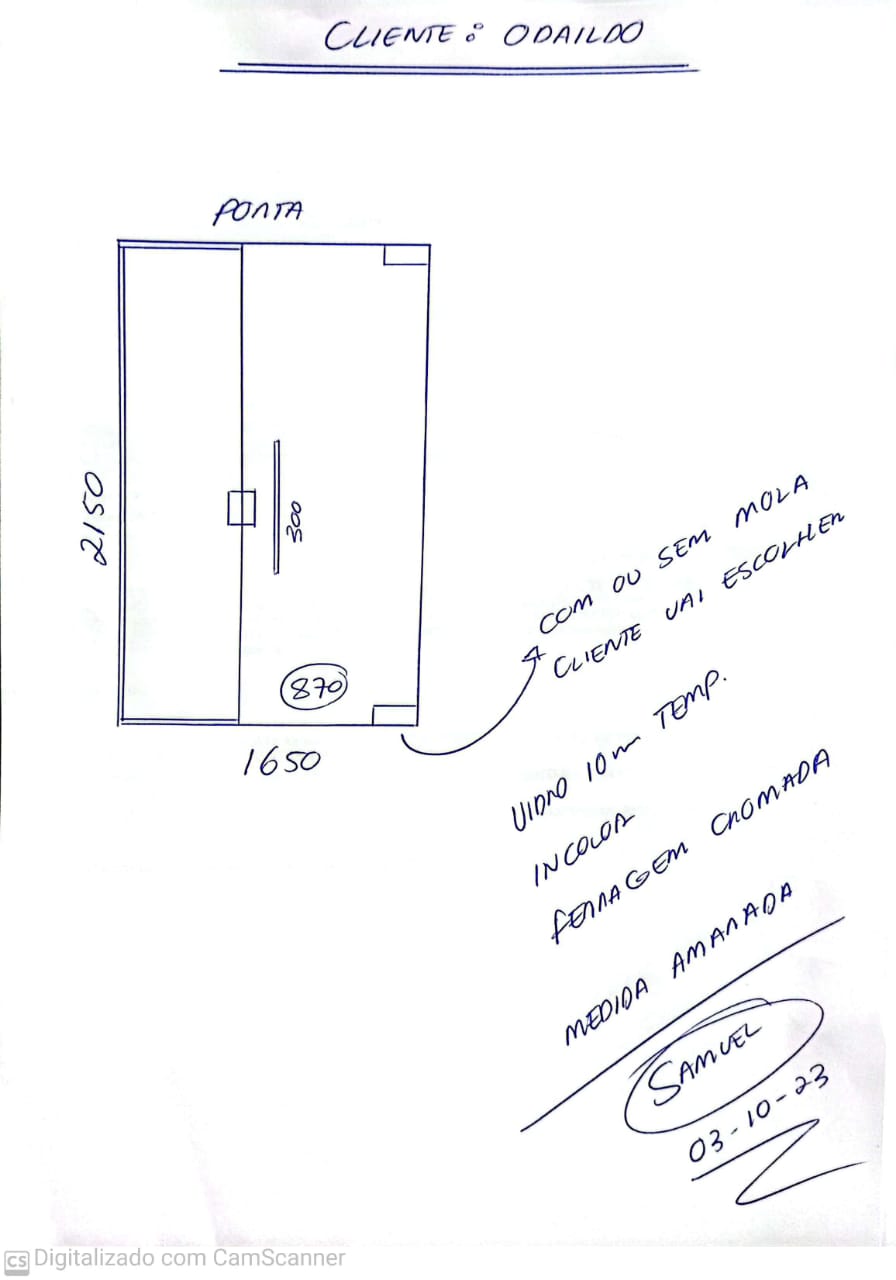 CLIENTE: ODAILDO
PORTA
2150
300
870
1650
COM OU SEM MOLA
CLIENTE VAI ESCOLHER
VIDRO 10mm TEMP.
INCOLOR
FERRAGEM CROMADA
MEDIDA AMARRADA
SAMUEL
03-10-23
CS Digitalizado com CamScanner